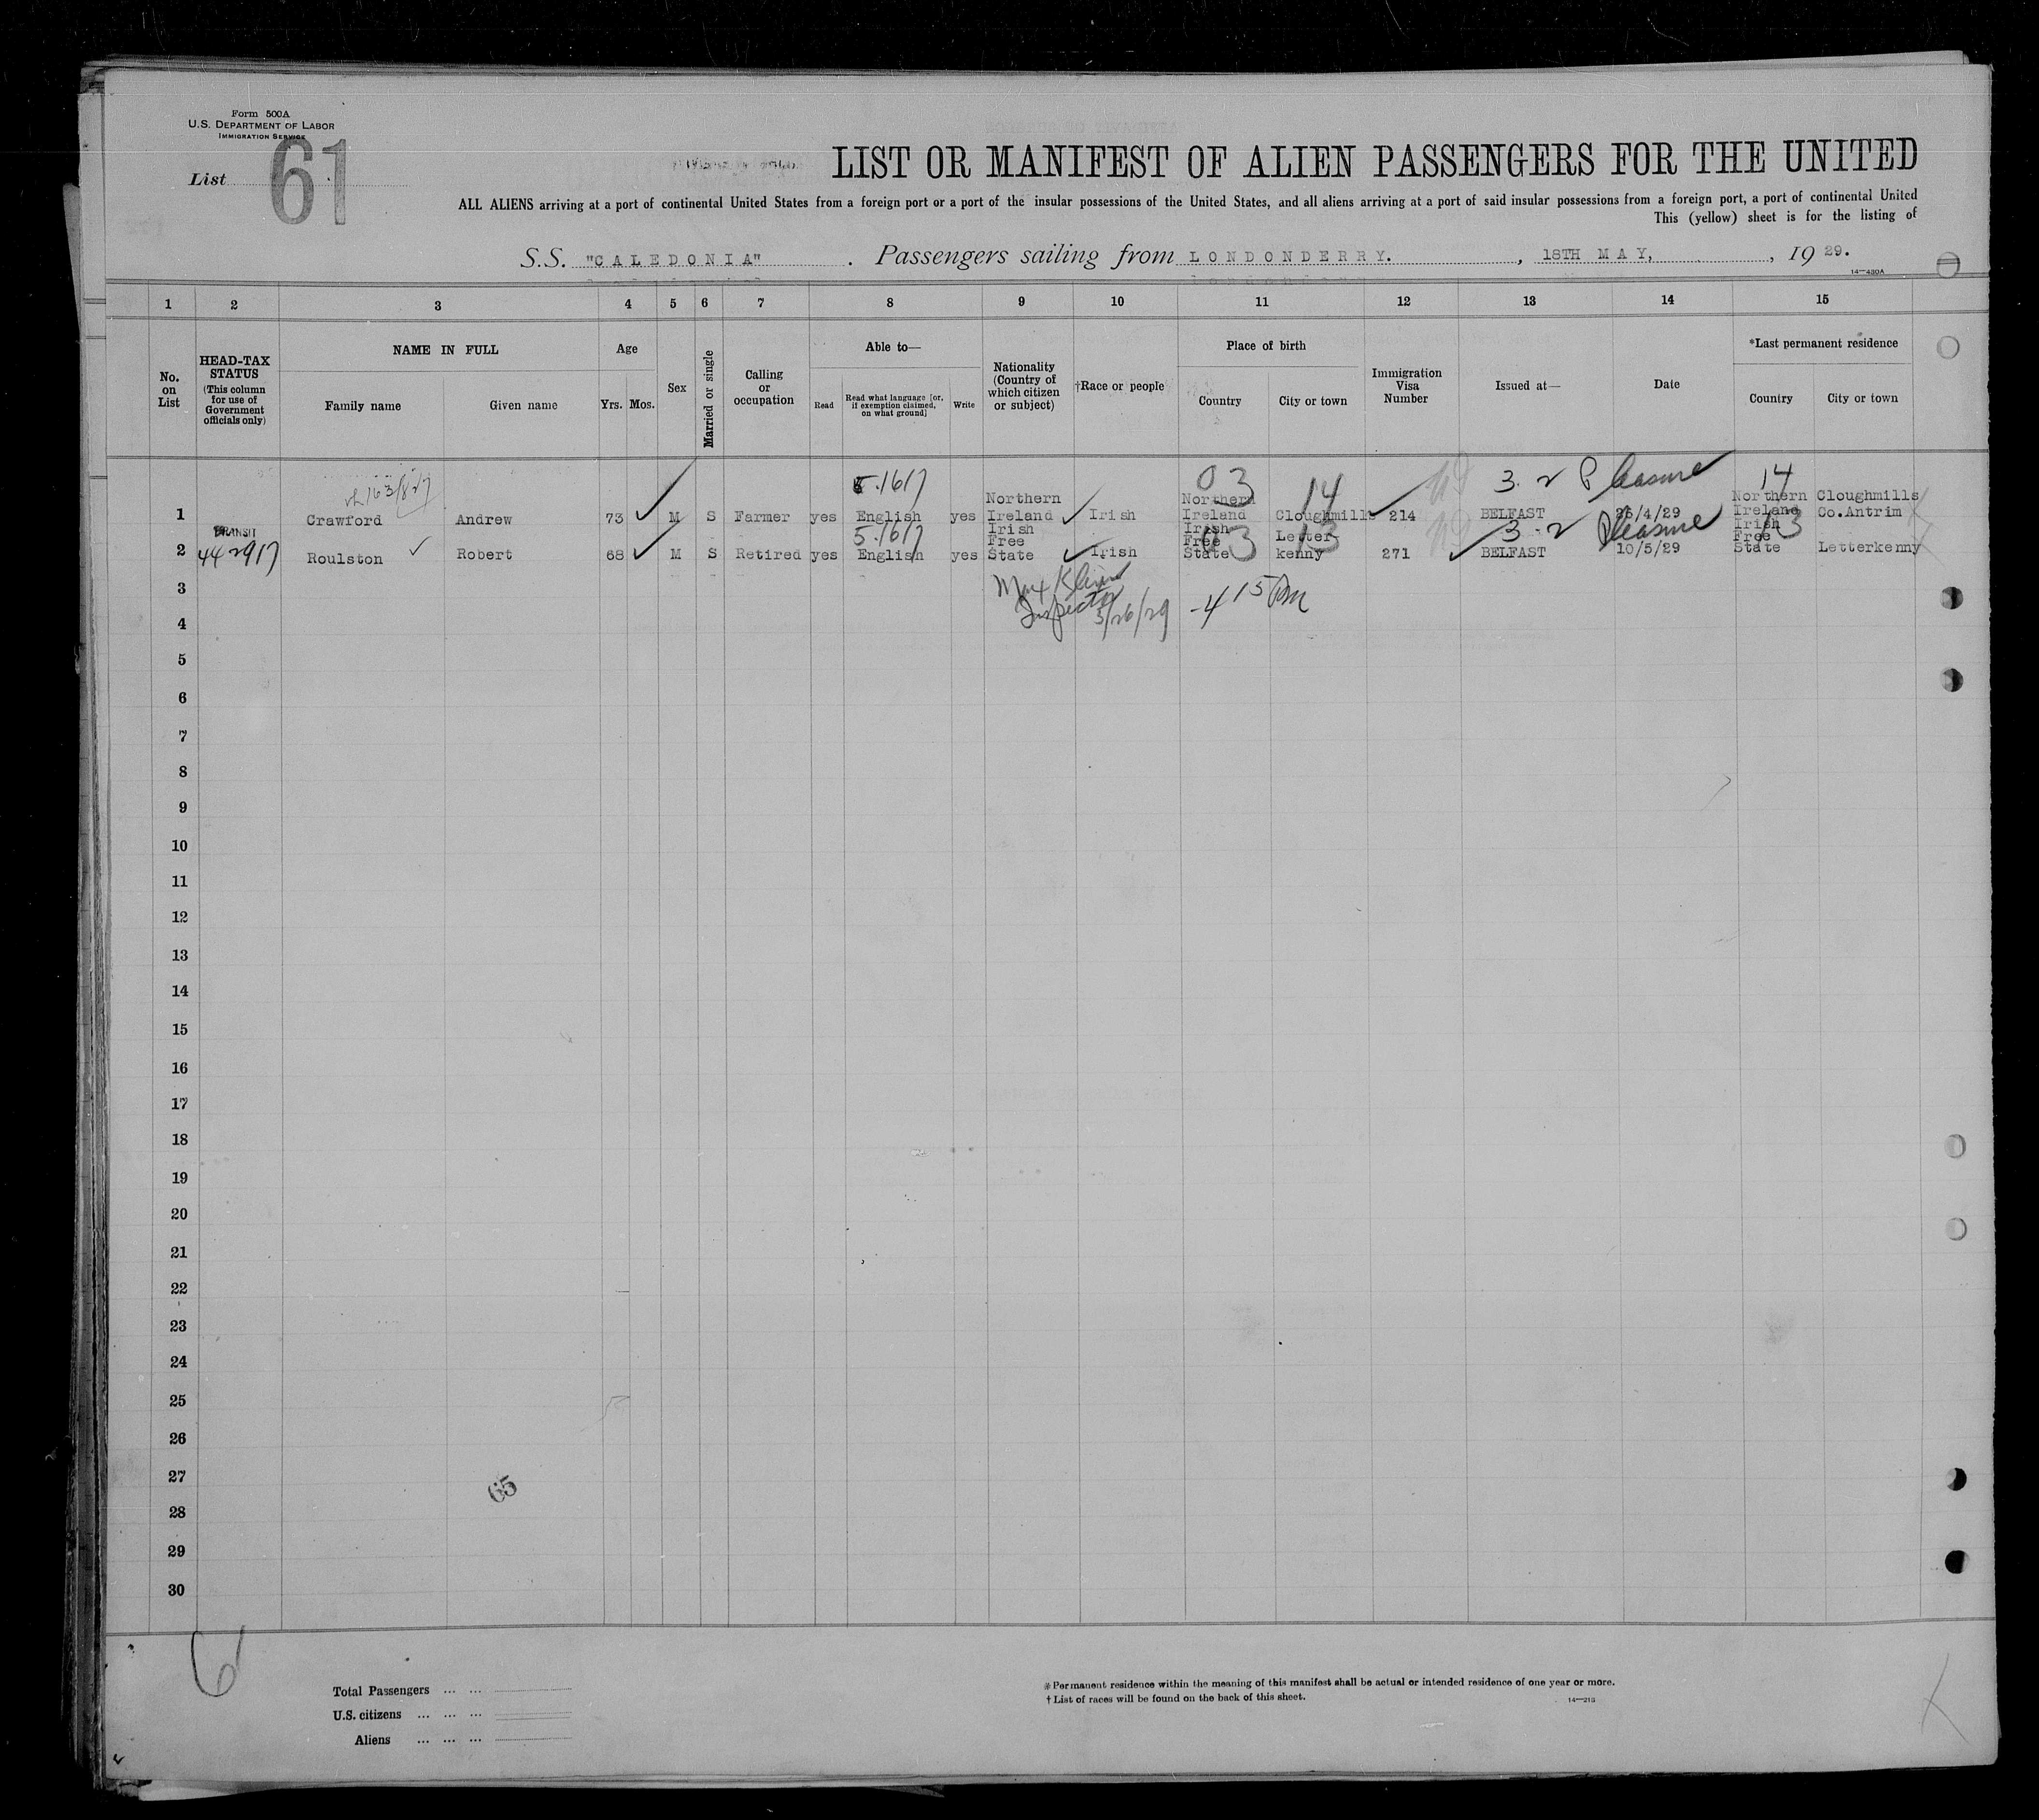 Form 500A
U.S. DEPARTMENT OF LABOR
IMMIGRATION SERVICE
List 61
LIST OR MANIFEST OF ALIEN PASSENGERS FOR THE UNITED
ALL ALIENS arriving at a port of continental United States from a foreign port or a port of the insular possessions of the United States, and all aliens arriving at a port of said insular possessions from a foreign port, a port of continental United
This (yellow) sheet is for the listing of
S.S. "CALEDONIA" . Passengers sailing from LONDONDERRY. , 18TH MAY, , 19 29.
14—430A
1 2 3 4 5 6 7 8 9 10 11 12 13 14 15
No. on List
HEAD-TAX STATUS
(This column for use of Government officials only)
NAME IN FULL
Family name Given name
Age
Yrs. Mos.
Sex
Married or single
Calling or occupation
Able to—
Read
Read what language [or, if exemption claimed, on what ground]
Write
Nationality (Country of which citizen or subject)
†Race or people
Place of birth
Country City or town
Immigration Visa Number
Issued at—
Date
*Last permanent residence
Country City or town
5.1617 03 14 3.2 Pleasure 14
1 Crawford Andrew 73 M S Farmer yes English yes Northern Ireland Irish Northern Ireland Cloughmills 214 BELFAST 26/4/29 Northern Ireland Cloughmills Co.Antrim
TRANSIT 5.1617 03 13 3.2 Pleasure 13
2 442917 Roulston Robert 68 M S Retired yes English yes Irish Free State Irish Irish Free State Letter-kenny 271 BELFAST 10/5/29 Irish Free State Letterkenny
3 Max
Inspector 5/26/29 -4 15 PM
4
5
6
7
8
9
10
11
12
13
14
15
16
17
18
19
20
21
22
23
24
25
26
27
65
28
29
30
61
Total Passengers ... ...
U.S. citizens ... ... ...
Aliens ... ... ...
*Permanent residence within the meaning of this manifest shall be actual or intended residence of one year or more.
†List of races will be found on the back of this sheet.
14—213